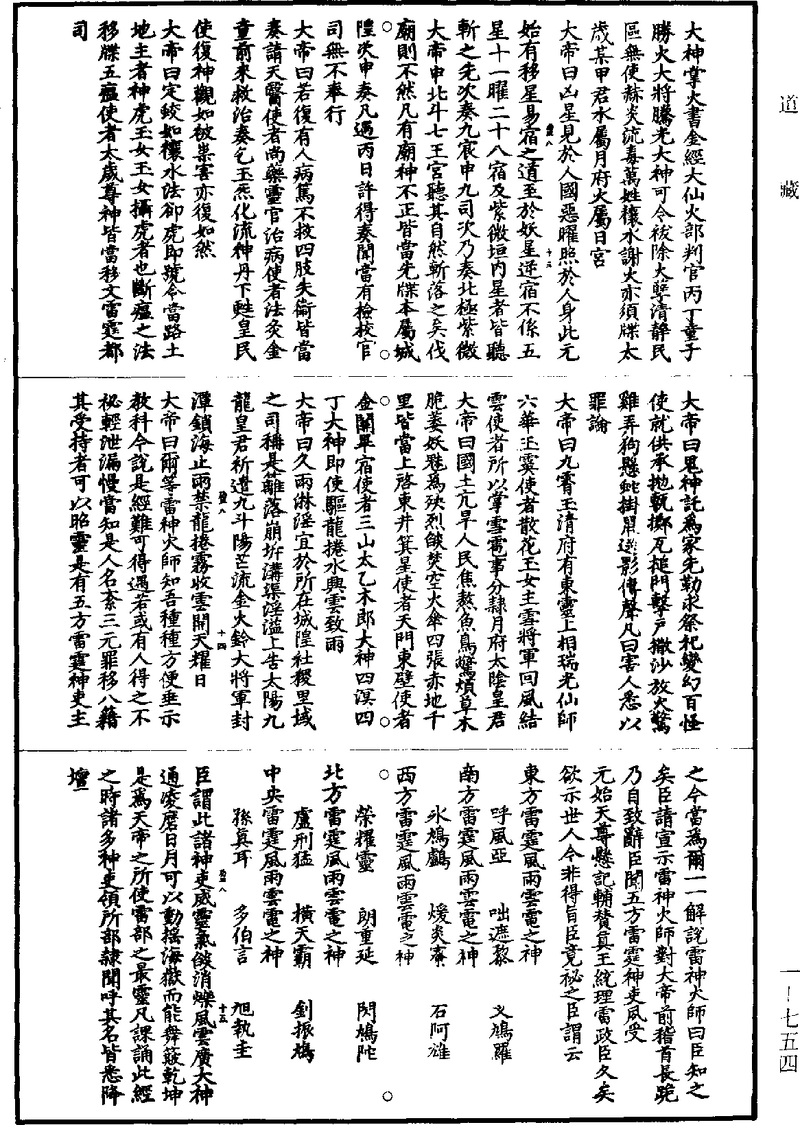 道藏
大神掌火書金經大仙火部判官丙丁童子
勝火大將騰光大神可令祓除火孽清靜民
區無使赫炎流毒萬姓禳水謝火亦須牒太
歲某甲君水屬月府火屬日宮
大帝曰凶星見於人國惡曜照於人身此元
始有移星易宿之道至於妖星逆宿不係五
星十一曜二十八宿及紫微垣內星者皆聽
斬之先次奏九宸申九司次乃奏北極紫微
大帝申北斗七王宮聽其自然斬落之矣伐
廟則不然凡有廟神不正皆當先牒本屬城
隍次申奏凡遇丙日許得奏聞當有檢校官
司無不奉行
大帝曰若復有人病篤不救四肢失衛皆當
奏請天醫使者尚藥靈官治病使者法灸金
童前來救治奏乞玉炁化流神丹下甦皇民
使復神觀如被祟害亦復如然
大帝曰定鮫如禳水法卻虎即號令當路土
地主者神虎玉女玉女攝虎者也斷瘟之法
移牒五瘟使者太歲尊神皆當移文雷霆都
司
大帝曰鬼神託為家先勒求祭祀變幻百怪
使就供承拋甎擲瓦搥門擊戶撒沙放火驚
雞弄狗懸蛇掛鼠送影傳聲凡曰害人悉以
罪論
大帝曰九霄玉清府有東靈上相瑞光仙師
六華玉冀使者散花玉女主雲將軍回風結
雲使者所以掌雪雹事分隸月府太陰皇君
大帝曰國土亢旱人民焦熬魚鳥驚煩草木
脆萎妖魃為殃烈燄焚空火傘四張赤地千
里皆當上啓東井箕星使者天門東壁使者
金闕畢宿使者三山太乙木郎大神四溟四
丁大神即使驅龍捲水興雲致雨
大帝曰久雨淋淫宜於所在城隍社稷里域
之司稱是籬落崩坼溝渠淫溢上告太陽九
龍皇君祈遣九斗陽芒流金火鈴大將軍封
潭鎖海止雨禁龍捲霧收雲開天耀日
大帝曰爾等雷神火師知吾種種方便垂示
教科今說是經難可得遇若或有人得之不
祕輕泄漏慢當知是人名紊三元罪移八籍
其受持者可以昭靈是有五方雷霆神吏主
之今當為爾一一解說雷神火師曰臣知之
矣臣請宣示雷神火師對大帝前稽首長跪
乃自致辭臣聞五方雷霆神吏夙受
元始天尊懸記輔贊真王統理雷政臣久矣
欲示世人今非得旨臣竟祕之臣謂云
東方雷霆風雨雲電之神
呼風亞 咄遮黎 义鳩羅
南方雷霆風雨雲電之神
氷鳩鸕 煖炎𤋎 石阿雄
西方雷霆風雨雲電之神
榮耀靈 朗重延 閃鳩陀
北方雷霆風雨雲電之神
盧刑猛 橫天霸 劉振鳩
中央雷霆風雨雲電之神
孫真耳 多伯言 旭執圭
臣謂此諸神吏威靈氣燄消爍風雲廣大神
通凌磨日月可以動搖海嶽而能舞簸乾坤
是為天帝之所使雷部之最靈凡課誦此經
之時諸多神吏領所部隸聞呼其名皆悉降
壇
一—七五四